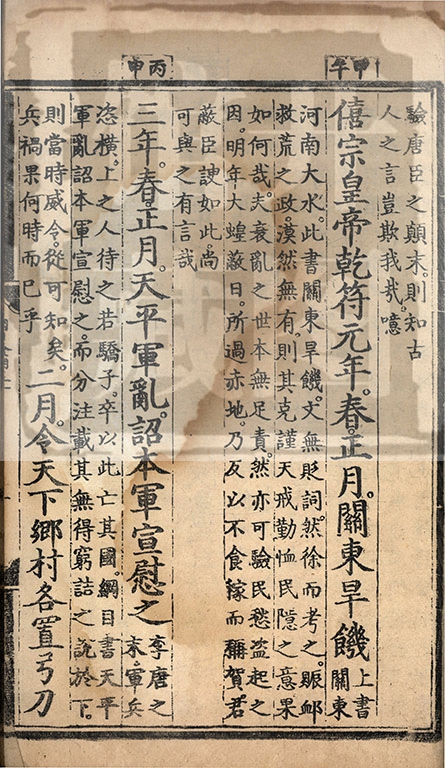 甲午
驗唐臣之顛末。則知古
人之言豈欺我哉。噫
僖宗皇帝乾符元年。春正月。關東旱饑
上書
關東
河南大水。此書關東旱饑。文無貶詞。然徐而考之。賑卹
救荒之政。漠然無有。則其克謹天戒勤恤民隱之意果
如何哉。夫衰亂之世本無足責。然亦可驗民愁盜起之
因。明年大蝗蔽日。所過赤地。乃反以不食稼而稱賀。君
蔽臣諛如此。尚
可與之有言哉
丙申
三年。春正月。天平軍亂。詔本軍宣慰之
李唐之
末。軍兵
恣橫。上之人待之若驕子。卒以此亡其國。綱目書天平
軍亂詔本軍宣慰之。而分注載其無得窮詰之說於下。
則當時威令。從可知矣。
兵禍果何時而已乎
二月。令天下鄉村各置弓刀